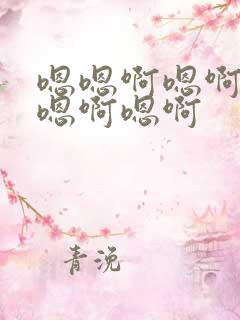 嗯嗯啊嗯啊
嗯啊嗯啊
青浼